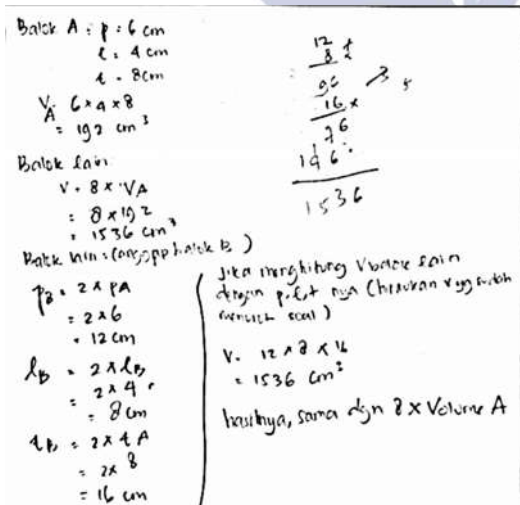 Balok A : p = 6 cm
l = 4 cm
t = 8 cm
VA = 6 x 4 x 8
= 192 cm³
Balok lain
V = 8 x VA
= 8 x 192
= 1536 cm³
Balok lain : (anggap balok B)
pB = 2 x pA
= 2 x 6
= 12 cm
lB = 2 x lB
= 2 x 4
= 8 cm
tB = 2 x tA
= 2 x 8
= 16 cm
12
8 x
96
16 x
76
1536
Jika menghitung V balok lain
dengan p, l, t nya (
soal)
V = 12 x 8 x 16
= 1536 cm³
hasilnya, sama dgn 8 x Volume A